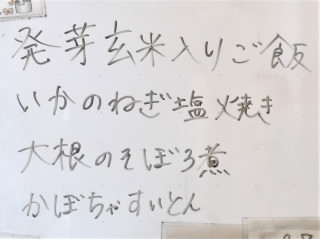 発芽玄米入りご飯
いかのねぎ塩焼き
大根のそぼろ煮
かぼちゃすいとん